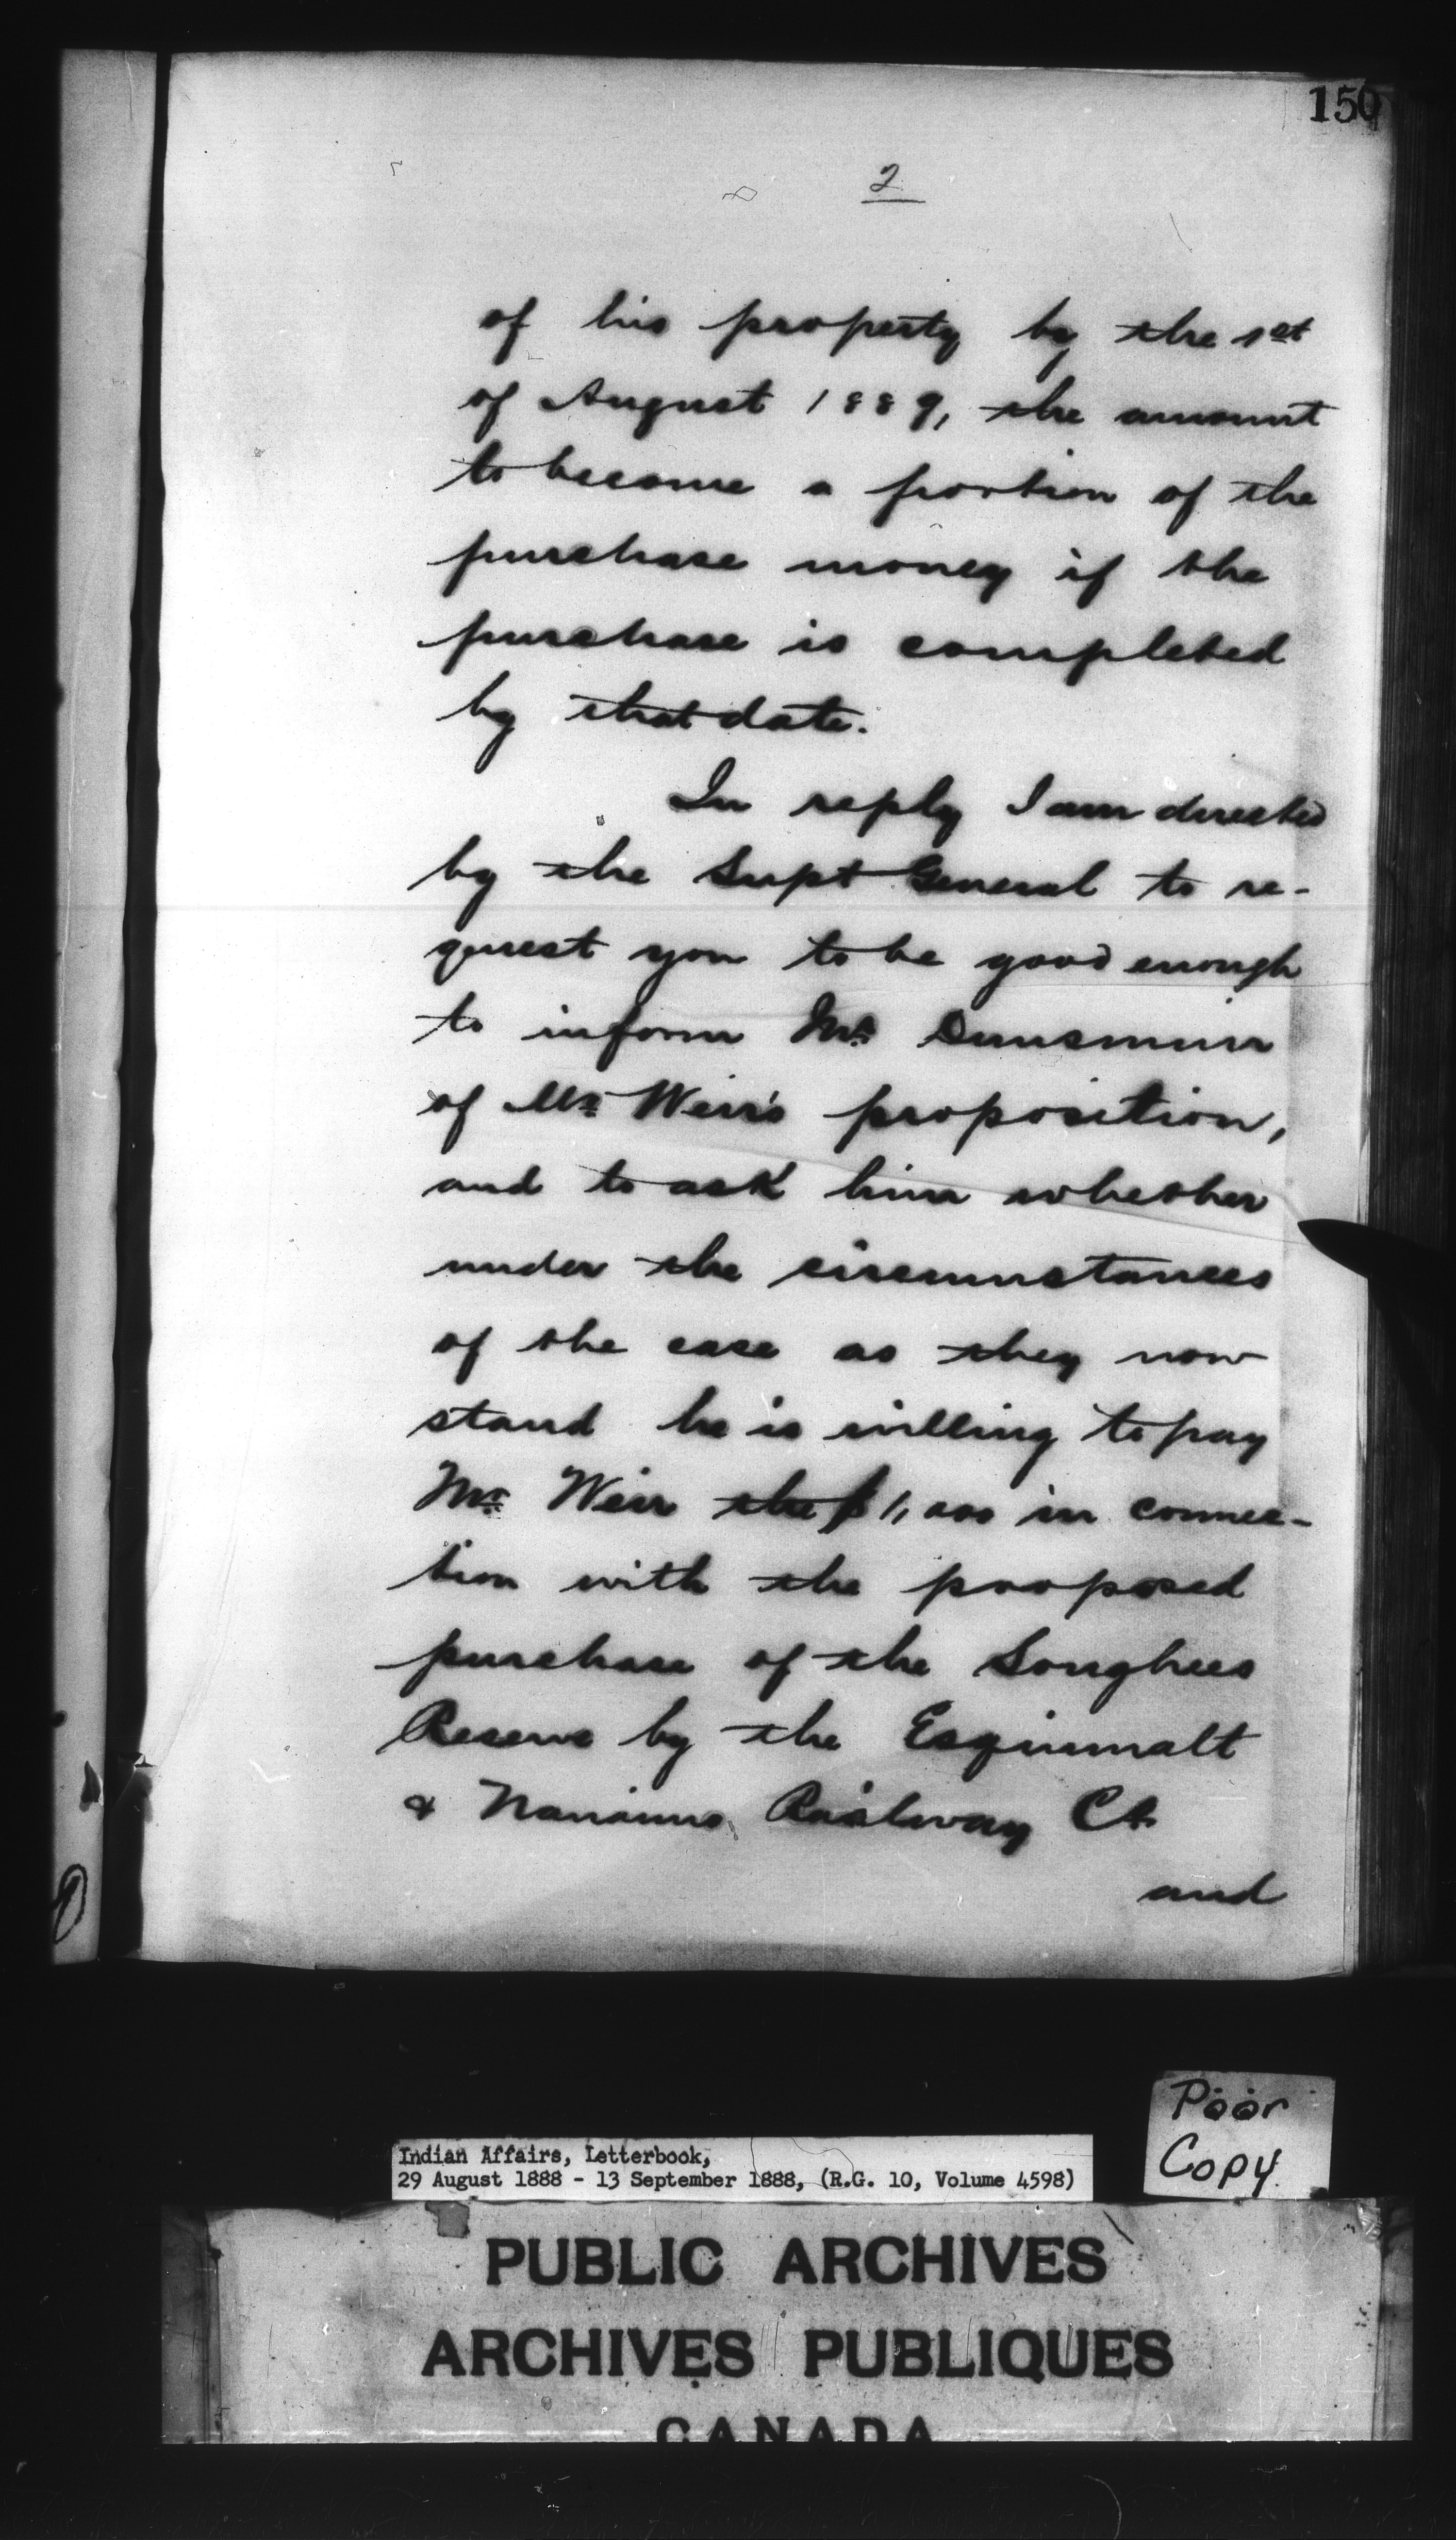 150
2
of his property by the 1st
of August 1889, the amount
to become a portion of the
purchase money if the
purchase is completed
by that date.
In reply I am directed
by the Supt General to re-
quest you to be good enough
to inform Mr Dunsmuir
of Mr Weir's proposition,
and to ask him whether
under the circumstances
of the case as they now
stand he is willing to pay
Mr Weir the $1,000 in connec-
tion with the proposed
purchase of the Songhees
Reserve by the Esquimalt
& Nanaimo Railway Co.
and
Poor
Copy
Indian Affairs, Letterbook,
29 August 1888 - 13 September 1888, (R.G. 10, Volume 4598)
PUBLIC ARCHIVES
ARCHIVES PUBLIQUES
CANADA